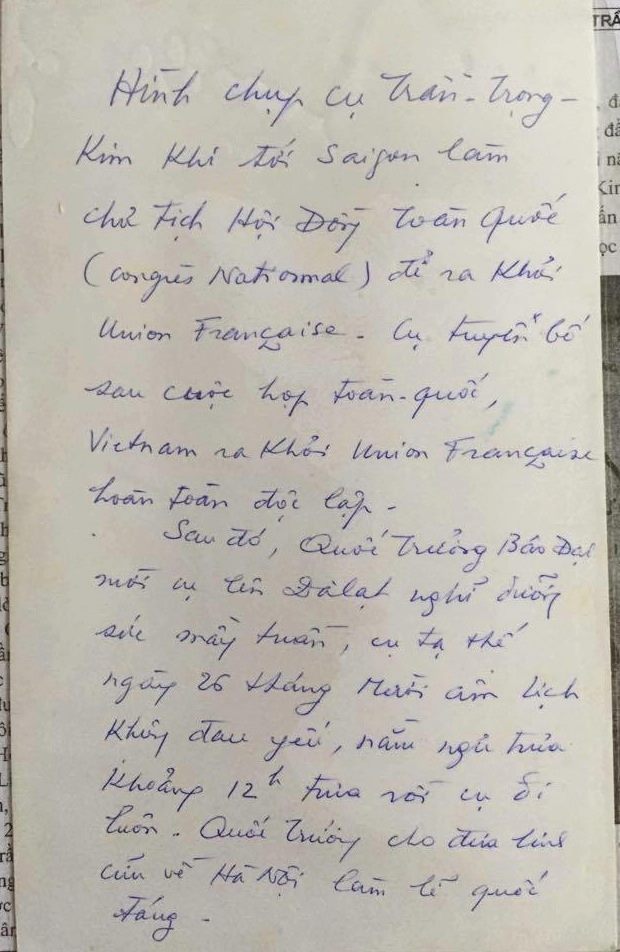 Hình chụp cụ Trần-Trọng-
Kim khi tới Saigon làm
chủ tịch Hội Đồng toàn quốc
(congrès National) để ra khỏi
Union Française. Cụ tuyên bố
sau cuộc họp toàn-quốc,
Vietnam ra khỏi Union Française
hoàn toàn độc lập.
Sau đó, Quốc Trưởng Bảo Đại
mời cụ lên Dalat nghỉ dưỡng
sức mấy tuần, cụ tạ thế
ngày 26 tháng Mười âm lịch
không đau yếu, nằm ngủ trưa
khoảng 12h trưa rồi cụ đi
luôn. Quốc Trưởng cho đưa linh
cửu về Hà Nội làm lễ quốc
táng.
TRẦ